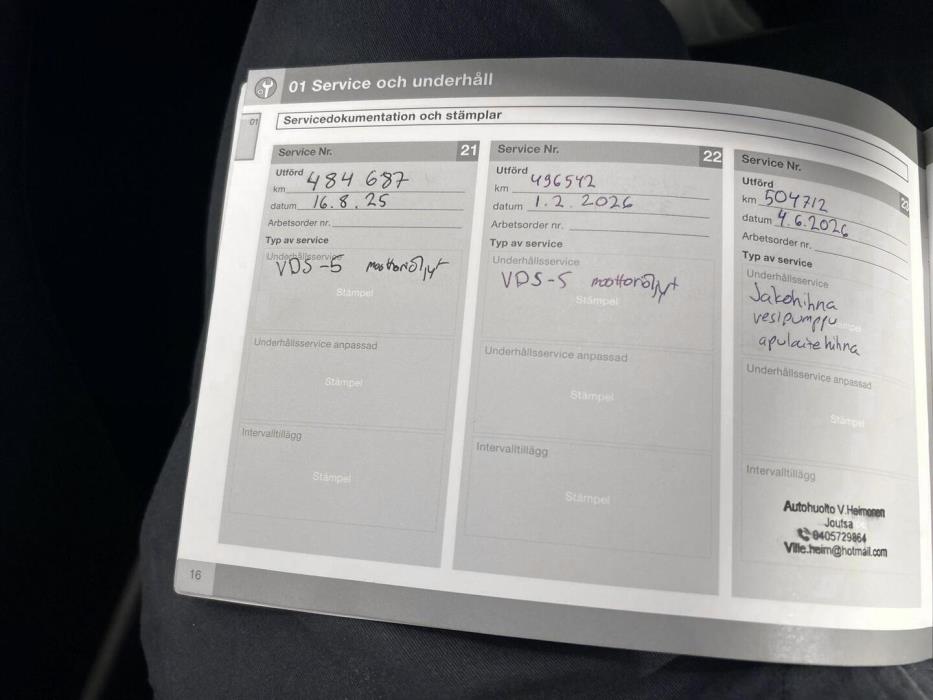 01 Service och underhåll
01
Servicedokumentation och stämplar
Service Nr. 21
Utförd
km 484 687
datum 16.8.25
Arbetsorder nr.
Typ av service
Underhållsservice
VDS-5 moottoriöljyt
Stämpel
Underhållsservice anpassad
Stämpel
Intervalltillägg
Stämpel
Service Nr. 22
Utförd
km 496542
datum 1.2.2026
Arbetsorder nr.
Typ av service
Underhållsservice
VDS-5 moottoriöljyt
Stämpel
Underhållsservice anpassad
Stämpel
Intervalltillägg
Stämpel
Service Nr.
Utförd
km 504712
datum 4.6.2026
Arbetsorder nr.
Typ av service
Underhållsservice
Jakohihna
vesipumppu
apulaitehihna
Underhållsservice anpassad
Stämpel
Intervalltillägg
Autohuolto V.Heimonen
Joutsa
0405729864
Ville.heim@hotmail.com
16